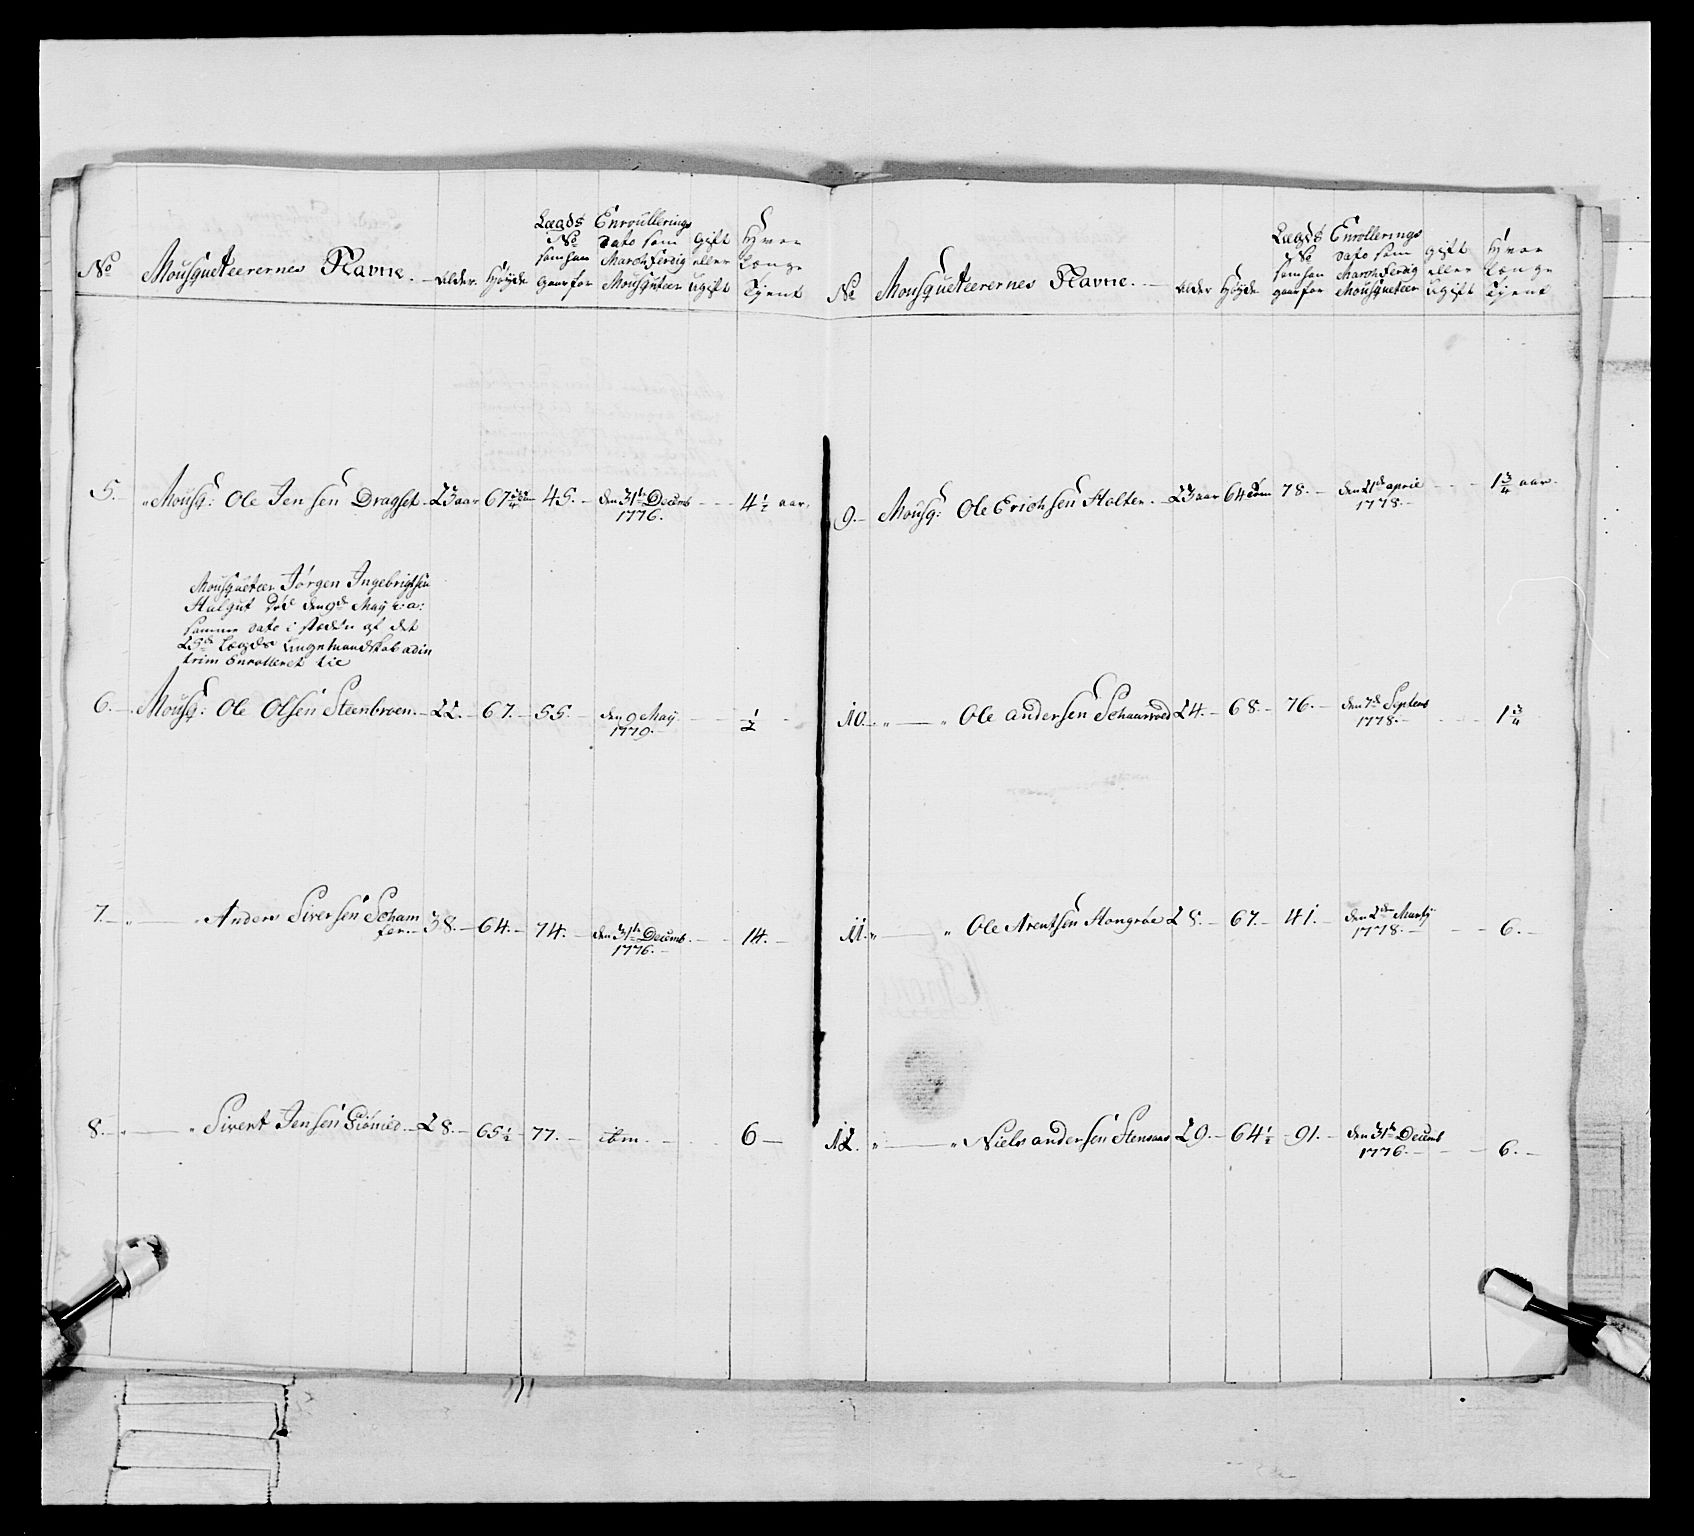 No Mousqueteerernes Navne. Alder. Høyde Lægds No som han gaar for Enroullerings Dato som March færdig Mousqueteer Gift eller Ugift Hvor Længe Tjent
5. Mousq: Ole Jensen Dragset. 23 aar 67 3/4 45. den 31te Decemb 1776. 4 1/2 aar.
Mousqueteer Jørgen Ingebrigtsen
Halgut død den 9de May h: a:
samme dato i stæden af det
25de Lægds Unge Mandskab
Enrolleret til
6. Mousq: Ole Olsen Steenbroen. 22. 67. 55. den 9 May 1779. 1/2
7. " " Anders Siversen Scham
fer. 38. 64. 74. den 31te Decemb. 1776. 14.
8. " " Sivert Jensen 28. 65 1/2 77. ibm. 6
No Mousqueteerernes Navne. Alder Høyde Lægds No som han gaar for Enrollerings Dato som March færdig Mousqueteer Gift eller Ugift Hvor Længe Tjent
9. Mousq: Ole Erichsen Holten. 23 aar 64 78. den 21de april 1778. 1 3/4 aar.
10. " " Ole Andersen 24. 68. 76. den 7de Septemb 1778. 1 3/4
11. " " Ole Arentsen Hongrøe 28. 67. 41. den 2den Marty 1778. 6.
12. " " Niels Andersen Stensaas 29. 64 1/2 91. den 31te Decemb 1776. 6.